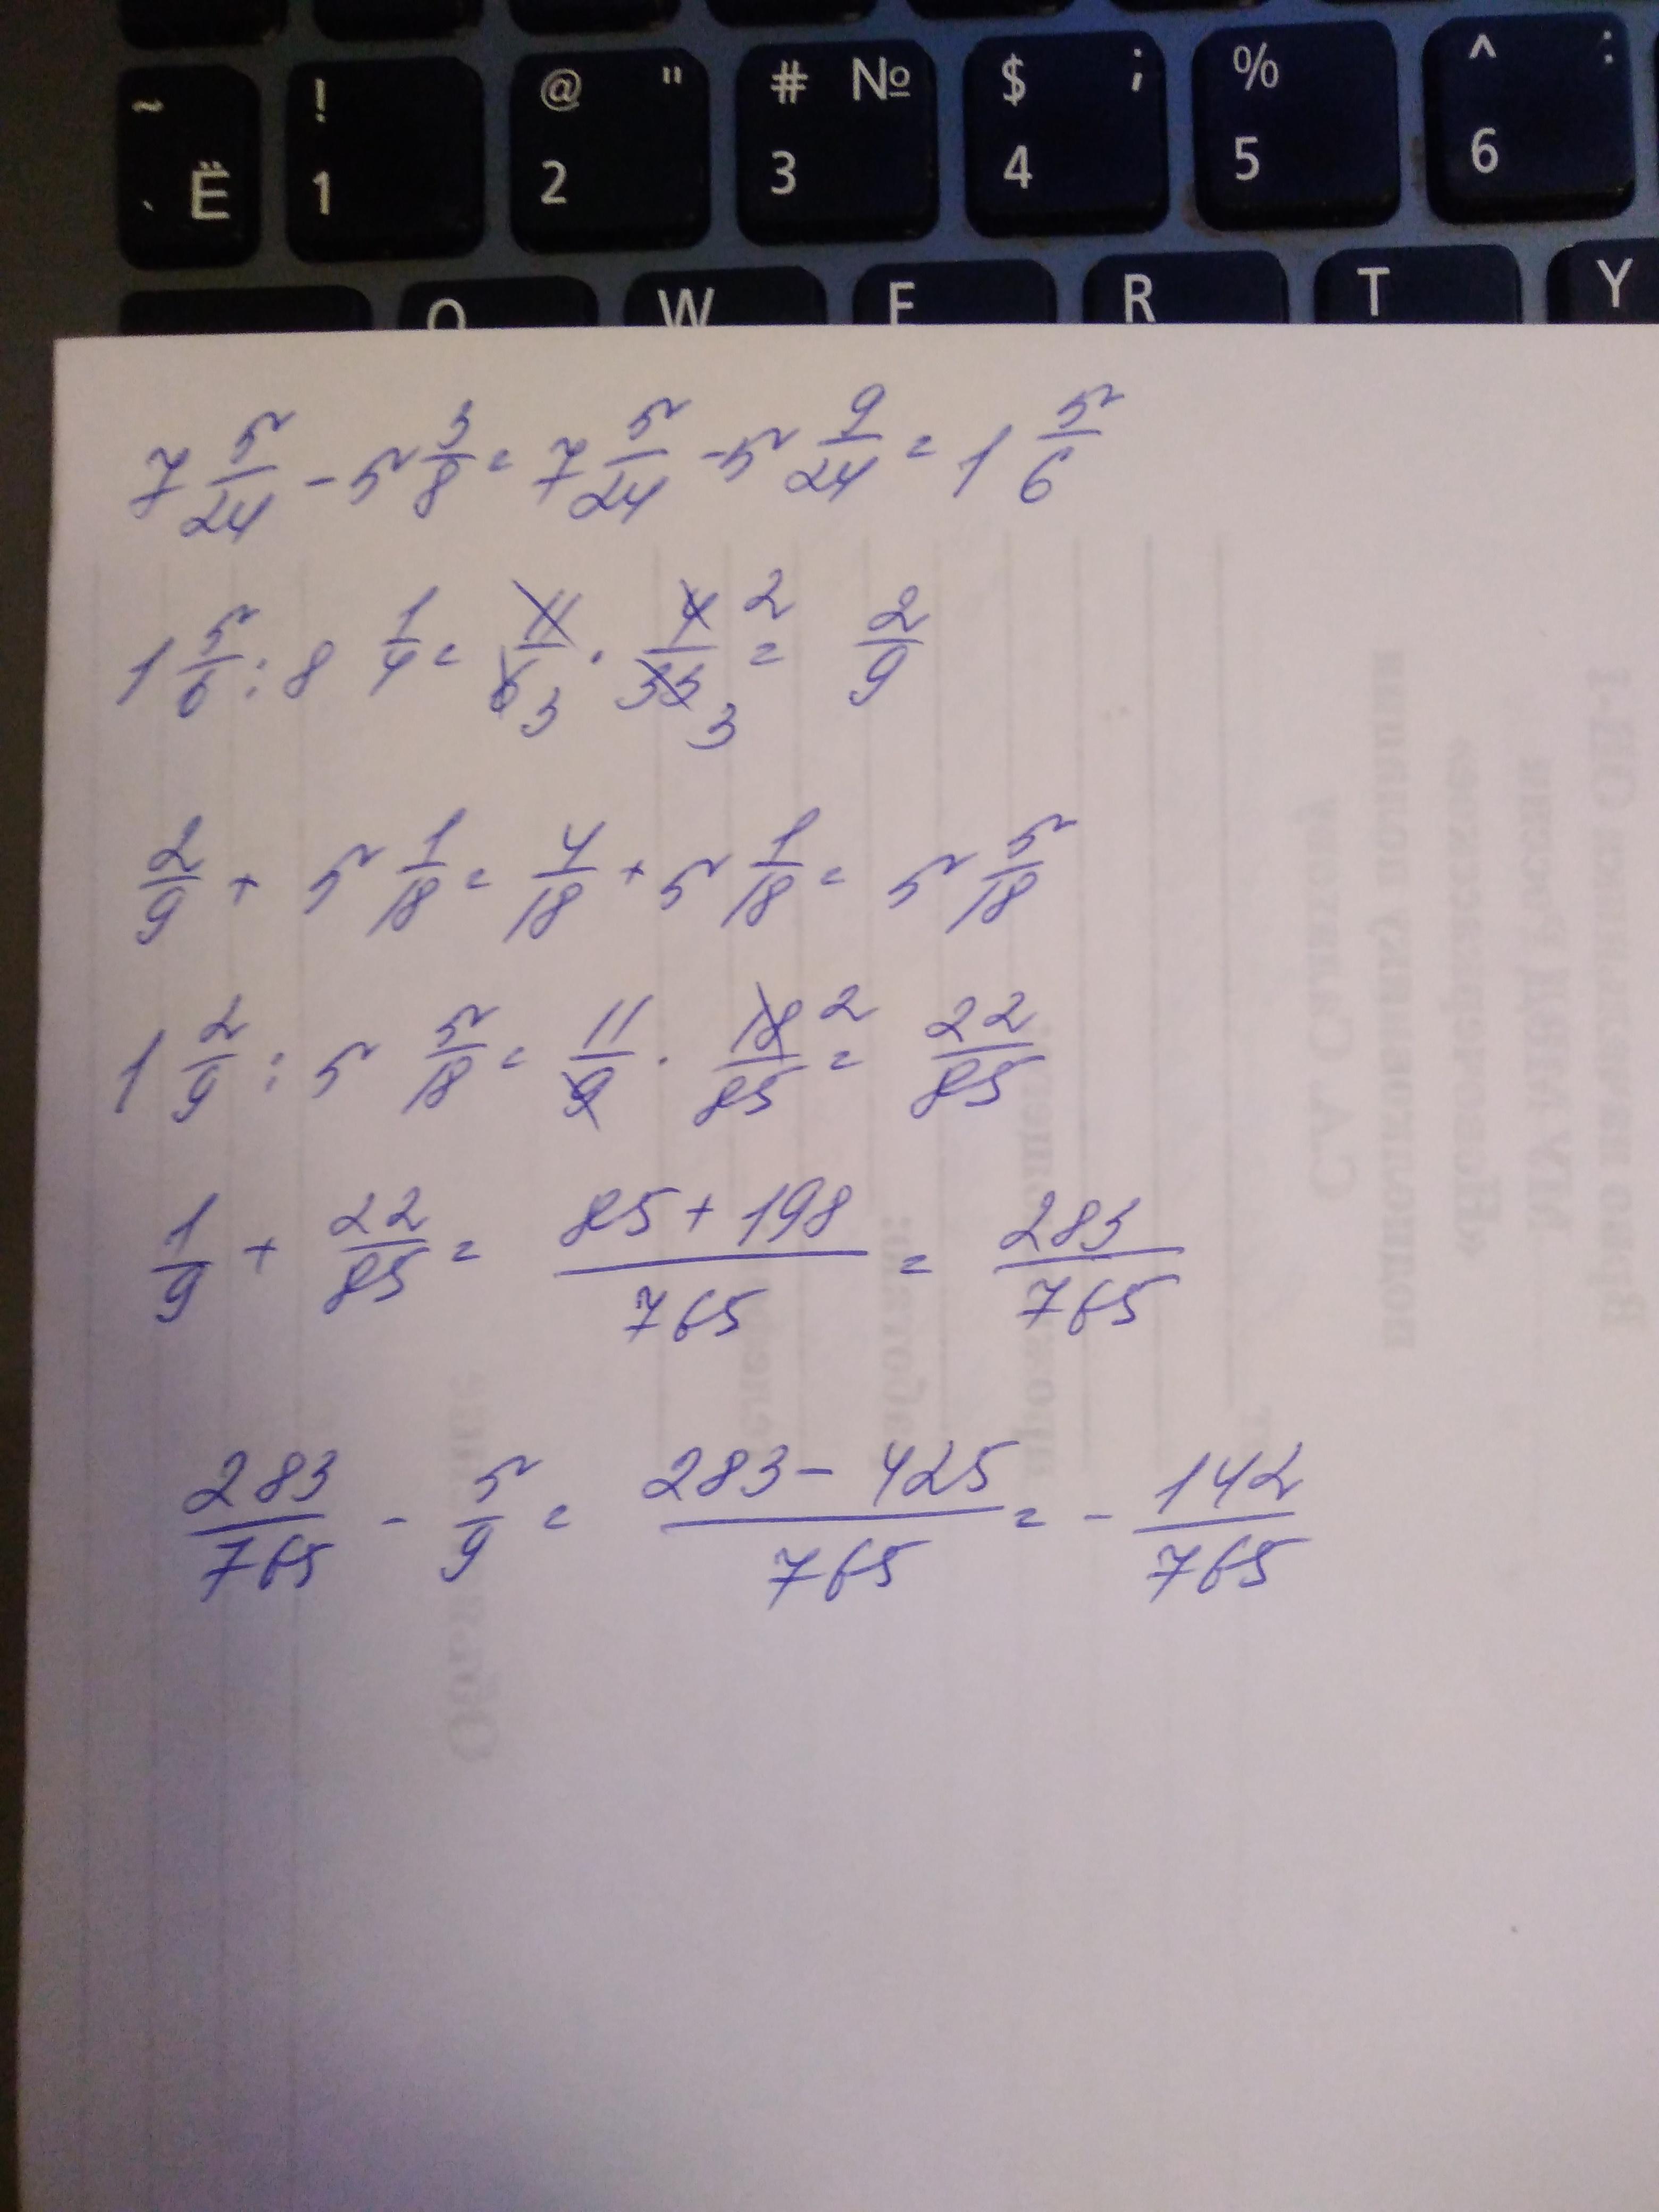 ~ ` Ё ! 1 @ " 2 # № 3 $ ; 4 % 5 ^ : 6
Q W E R T Y
7 5/24 - 5 3/8 = 7 5/24 - 5 9/24 = 1 5/6
1 5/6 : 8 1/4 = 11/6 3 · 4/33 2 3 = 2/9
2/9 + 5 1/18 = 4/18 + 5 1/18 = 5 5/18
1 2/9 : 5 5/18 = 11/9 · 18/85 2 = 22/85
1/9 + 22/85 = 85 + 198/765 = 283/765
283/765 - 5/9 = 283 - 425/765 = - 142/765